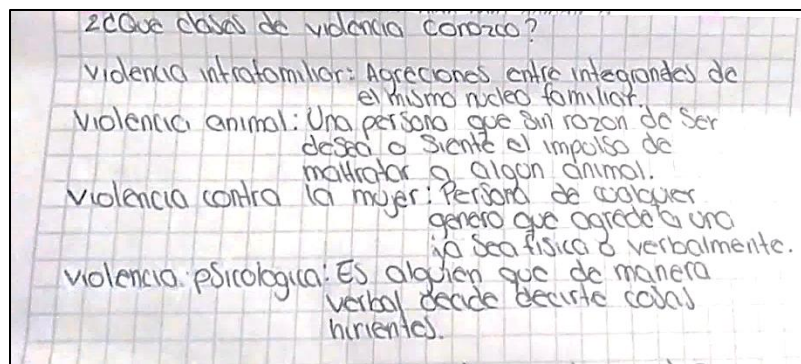 2¿Que clases de violencia conozco?
violencia intrafamiliar: Agreciones entre integrandes de
el mismo nucleo familiar.
violencia animal: Una persona que sin razon de ser
desea o siente el impulso de
maltratar a algun animal.
violencia contra la mujer: Persona de cualquier
genero que agrede a una
ya sea fisica o verbalmente.
violencia psicologica: Es alguien que de manera
verbal decide decirte cosas
hirientes.